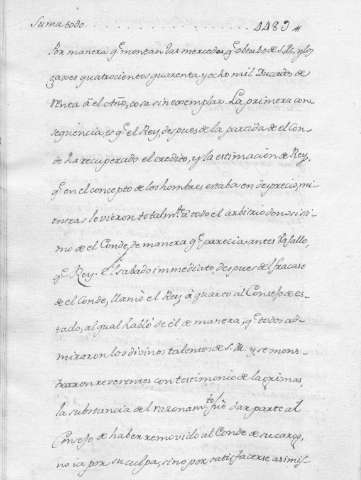 Suma todo . . . . . . . . . . . . 448 U
Por manera q.e montan las mercedes q.e obtubo de S.M. y los
gaxes quatrocientos quarenta y ocho mil Ducados de
renta á el Año, cosa sin exemplar. La primera con
seqüencia es q.e el Rey, despues de la partida de el con
de ha recuperado el credito, y la estimacion de Rey,
q.e en el concepto de los hombres estaba en desprecio, mi
entras le vieron totalm.te á todo el arbitrio
de el Conde, de manera q.e parecia antes
q.e Rey. El sabado immediato despues del fracaso
de el Conde, llamó el Rey á quarto al Consejo de es
tado, al qual habló de él de manera, q.e todos ad
miraron los divinos talentos de S.M. y se mons
traron reverentes con testimonio de lagrimas,
la substancia del razonam.to fue dar parte al
Consejo de haber removido al Conde de su cargo,
no ya por su culpa, sino por satisfacerse asimis